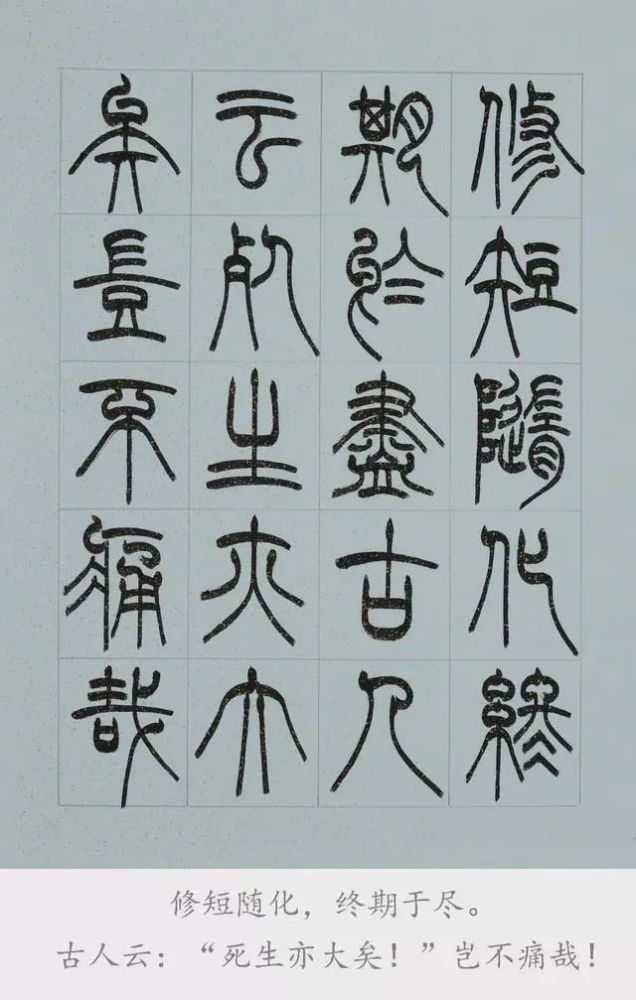 修短隨化終
期於盡古人
云死生亦大
矣豈不痛哉
修短随化，终期于尽。
古人云：“死生亦大矣！”岂不痛哉！